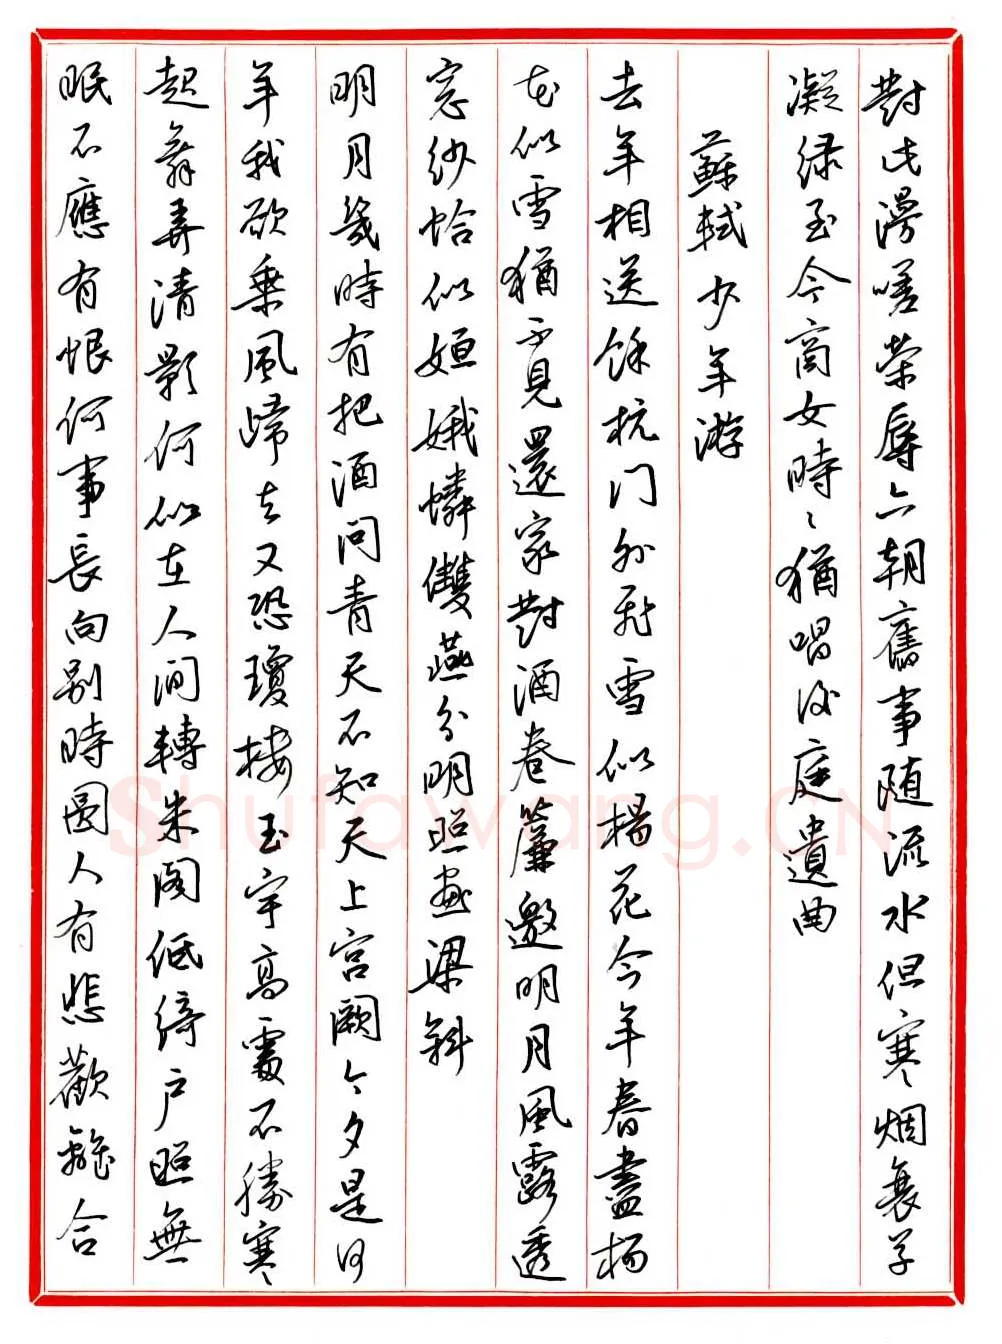 對此漫嗟榮辱六朝舊事随流水但寒烟衰草
凝绿至今商女時〻猶唱後庭遺曲
蘇軾少年游
去年相送馀杭门外飛雪似楊花今年春盡杨
花似雪猶不見還家對酒卷簾邀明月風露透
窓纱恰似姮娥憐雙燕分明照畫梁斜
明月幾時有把酒问青天不知天上宫阙今夕是何
年我欲乘風歸去又恐瓊楼玉宇高處不勝寒
起舞弄清影何似在人间轉朱阁低绮户照無
眠不應有恨何事長向别時圆人有悲歡離合
Shufawang.CN